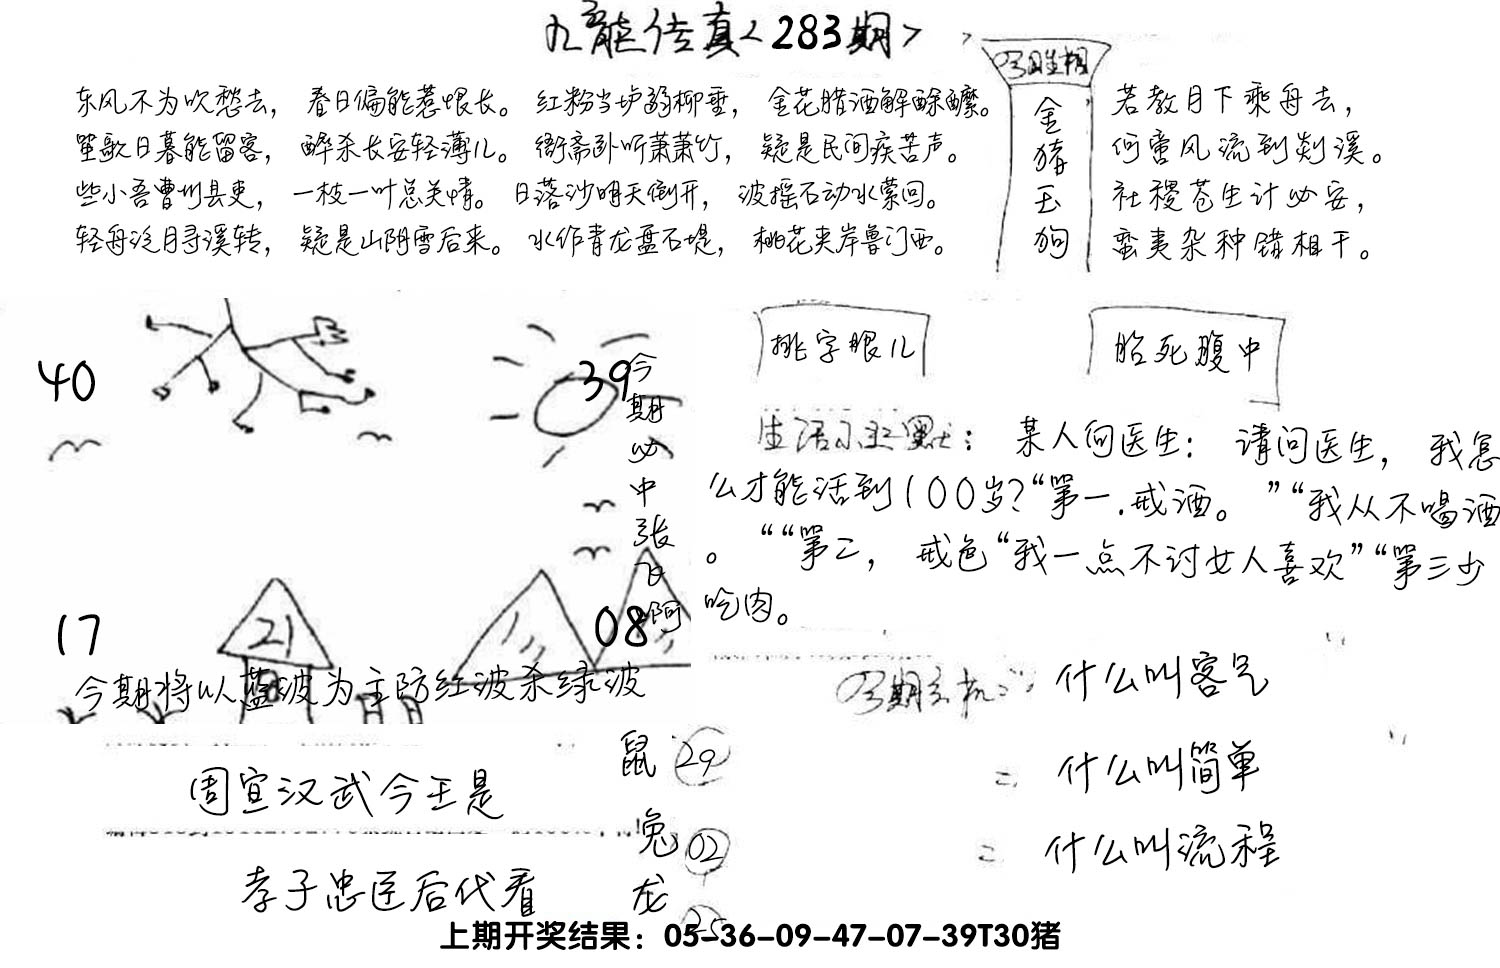 九龙传真<283期>
东风不为吹愁去，春日偏能惹恨长。红粉当垆弱柳垂，金花腊酒解酴醾。
笙歌日暮能留客，醉杀长安轻薄儿。衙斋卧听萧萧竹，疑是民间疾苦声。
些小吾曹州县吏，一枝一叶总关情。日落沙明天倒开，波摇石动水萦回。
轻舟泛月寻溪转，疑是山阴雪后来。水作青龙盘石堤，桃花夹岸鲁门西。
金猪玉狗
若教月下乘舟去，
何啻风流到剡溪。
社稷苍生计必安，
蛮夷杂种错相干。
40
39
17
21
08
今期必中张飞阿
今期将以蓝波为主防红波杀绿波
挑字眼儿
胎死腹中
生活小幽默：某人问医生：请问医生，我怎
么才能活到100岁？“第一.戒酒。”“我从不喝酒
。““第二，戒色“我一点不讨女人喜欢”“第三少
吃肉。
什么叫客气
什么叫简单
什么叫流程
周宣汉武今王是
孝子忠臣后代看
鼠 29
兔 02
龙 25
上期开奖结果：05-36-09-47-07-39T30猪